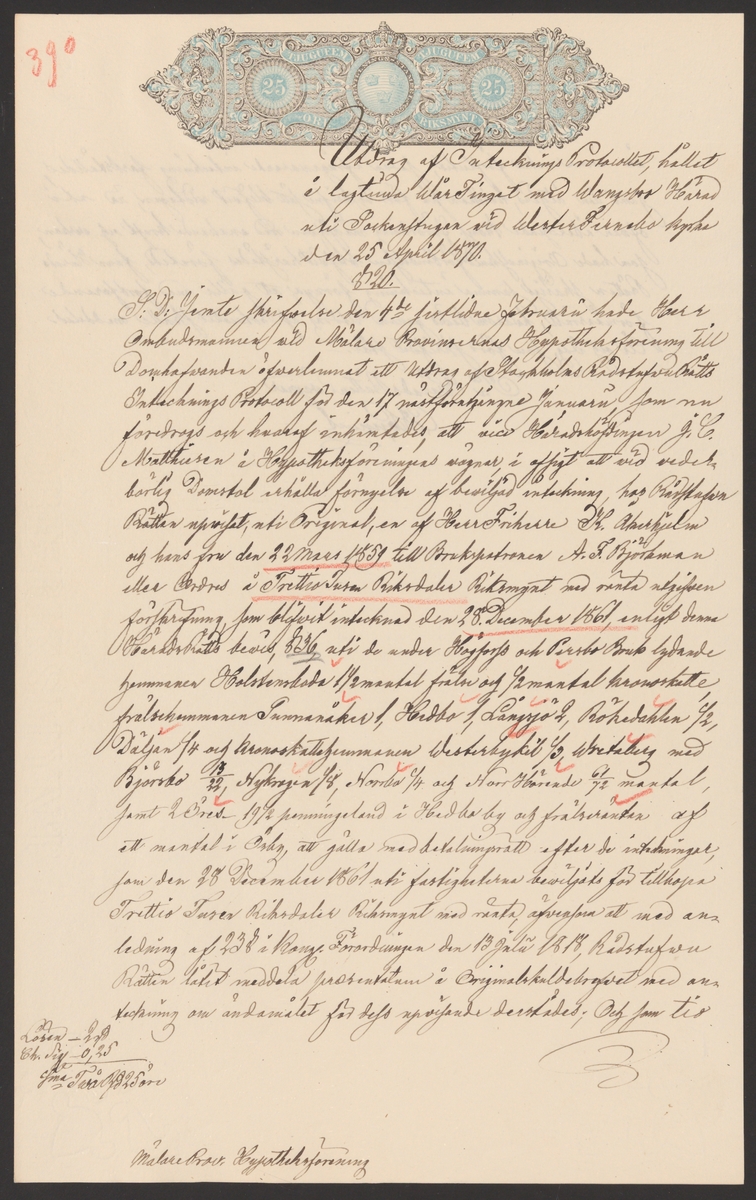 390
TJUGUFEM TJUGUFEM
25 25
ÖRE RIKSMYNT
Utdrag af Intecknings Protocollet, hållet
å lagtima WårTinget med Wangsbro Härad
uti Sockenstugan vid WesterFernebo Kyrka
den 25 April 1870.
§20.
S. D: Jemte skrifwelse den 4de sistlidne Februarii hade Herr
Ombudsmannen vid Mälare Provinsernas Hypotheksförening till
Domhafvanden öfverlemnat ett Utdrag af Stockholms Rådstufvu Rätts
Intecknings Protocoll för den 17 nästförutgångne Januarii, som nu
föredrogs och hvaraf inhämtades, att vice Häradshöfdingen J. C.
Matthiesen å Hypotheksföreningens vägnar, i afsigt att vid veder-
börlig Domstol erhålla förnyelse af beviljad inteckning, hos Rådstufvu
Rätten uppvisat, uti Original, en af Herr Friherre K. Åkerhjelm
och hans fru den 22 Mars 1859 till Brukspatronen A. F. Björkman
eller Ordres å Trettio Tusen Riksdaler Riksmynt med ränta utgifven
förskrifning, som blifvit intecknad den 28 December 1861, enligt denne
Häradsrätts bevis, §36, uti de under Högfors och Persbo Bruk lydande
hemmanen Holstensboda 1 1/2 mantal frälse och 1/2 mantal kronoskatte,
frälsehemmanen Tunnanåker 1, Hedbo 1, Långsjö 2, Bökedahlen 1/2,
Däljan 1/4 och kronoskattehemmanen Westerbykil 1/3 Wretaberg med
Björsbo 13/22, Nykrogen 1/8, Norrbo 1/4 och Norr Hörende 61/72 mantal,
samt 2 Öres 19 1/2 penningeland i Hedbo by och frälseräntan af
ett mantal i Ösby, att gälla med betalningsrätt efter de inteckningar,
som den 28 December 1861 uti fastigheterna beviljats för tillhopa
Trettio Tusen Riksdaler Riksmynt med ränta, äfvensom att med an-
ledning af 23 § i Kongl. Förordningen den 13 Juli 1818, Rådstufvu
Rätten låtit meddela præsentatum å Originalskuldebrefvet med an-
teckning om ändamålet för dess uppvisande derstädes; Och som tio
Lösen – 2
Ch. Sig – 0,25
Sma Två Rd 25 öre
Mälare Prov. Hypotheksförening